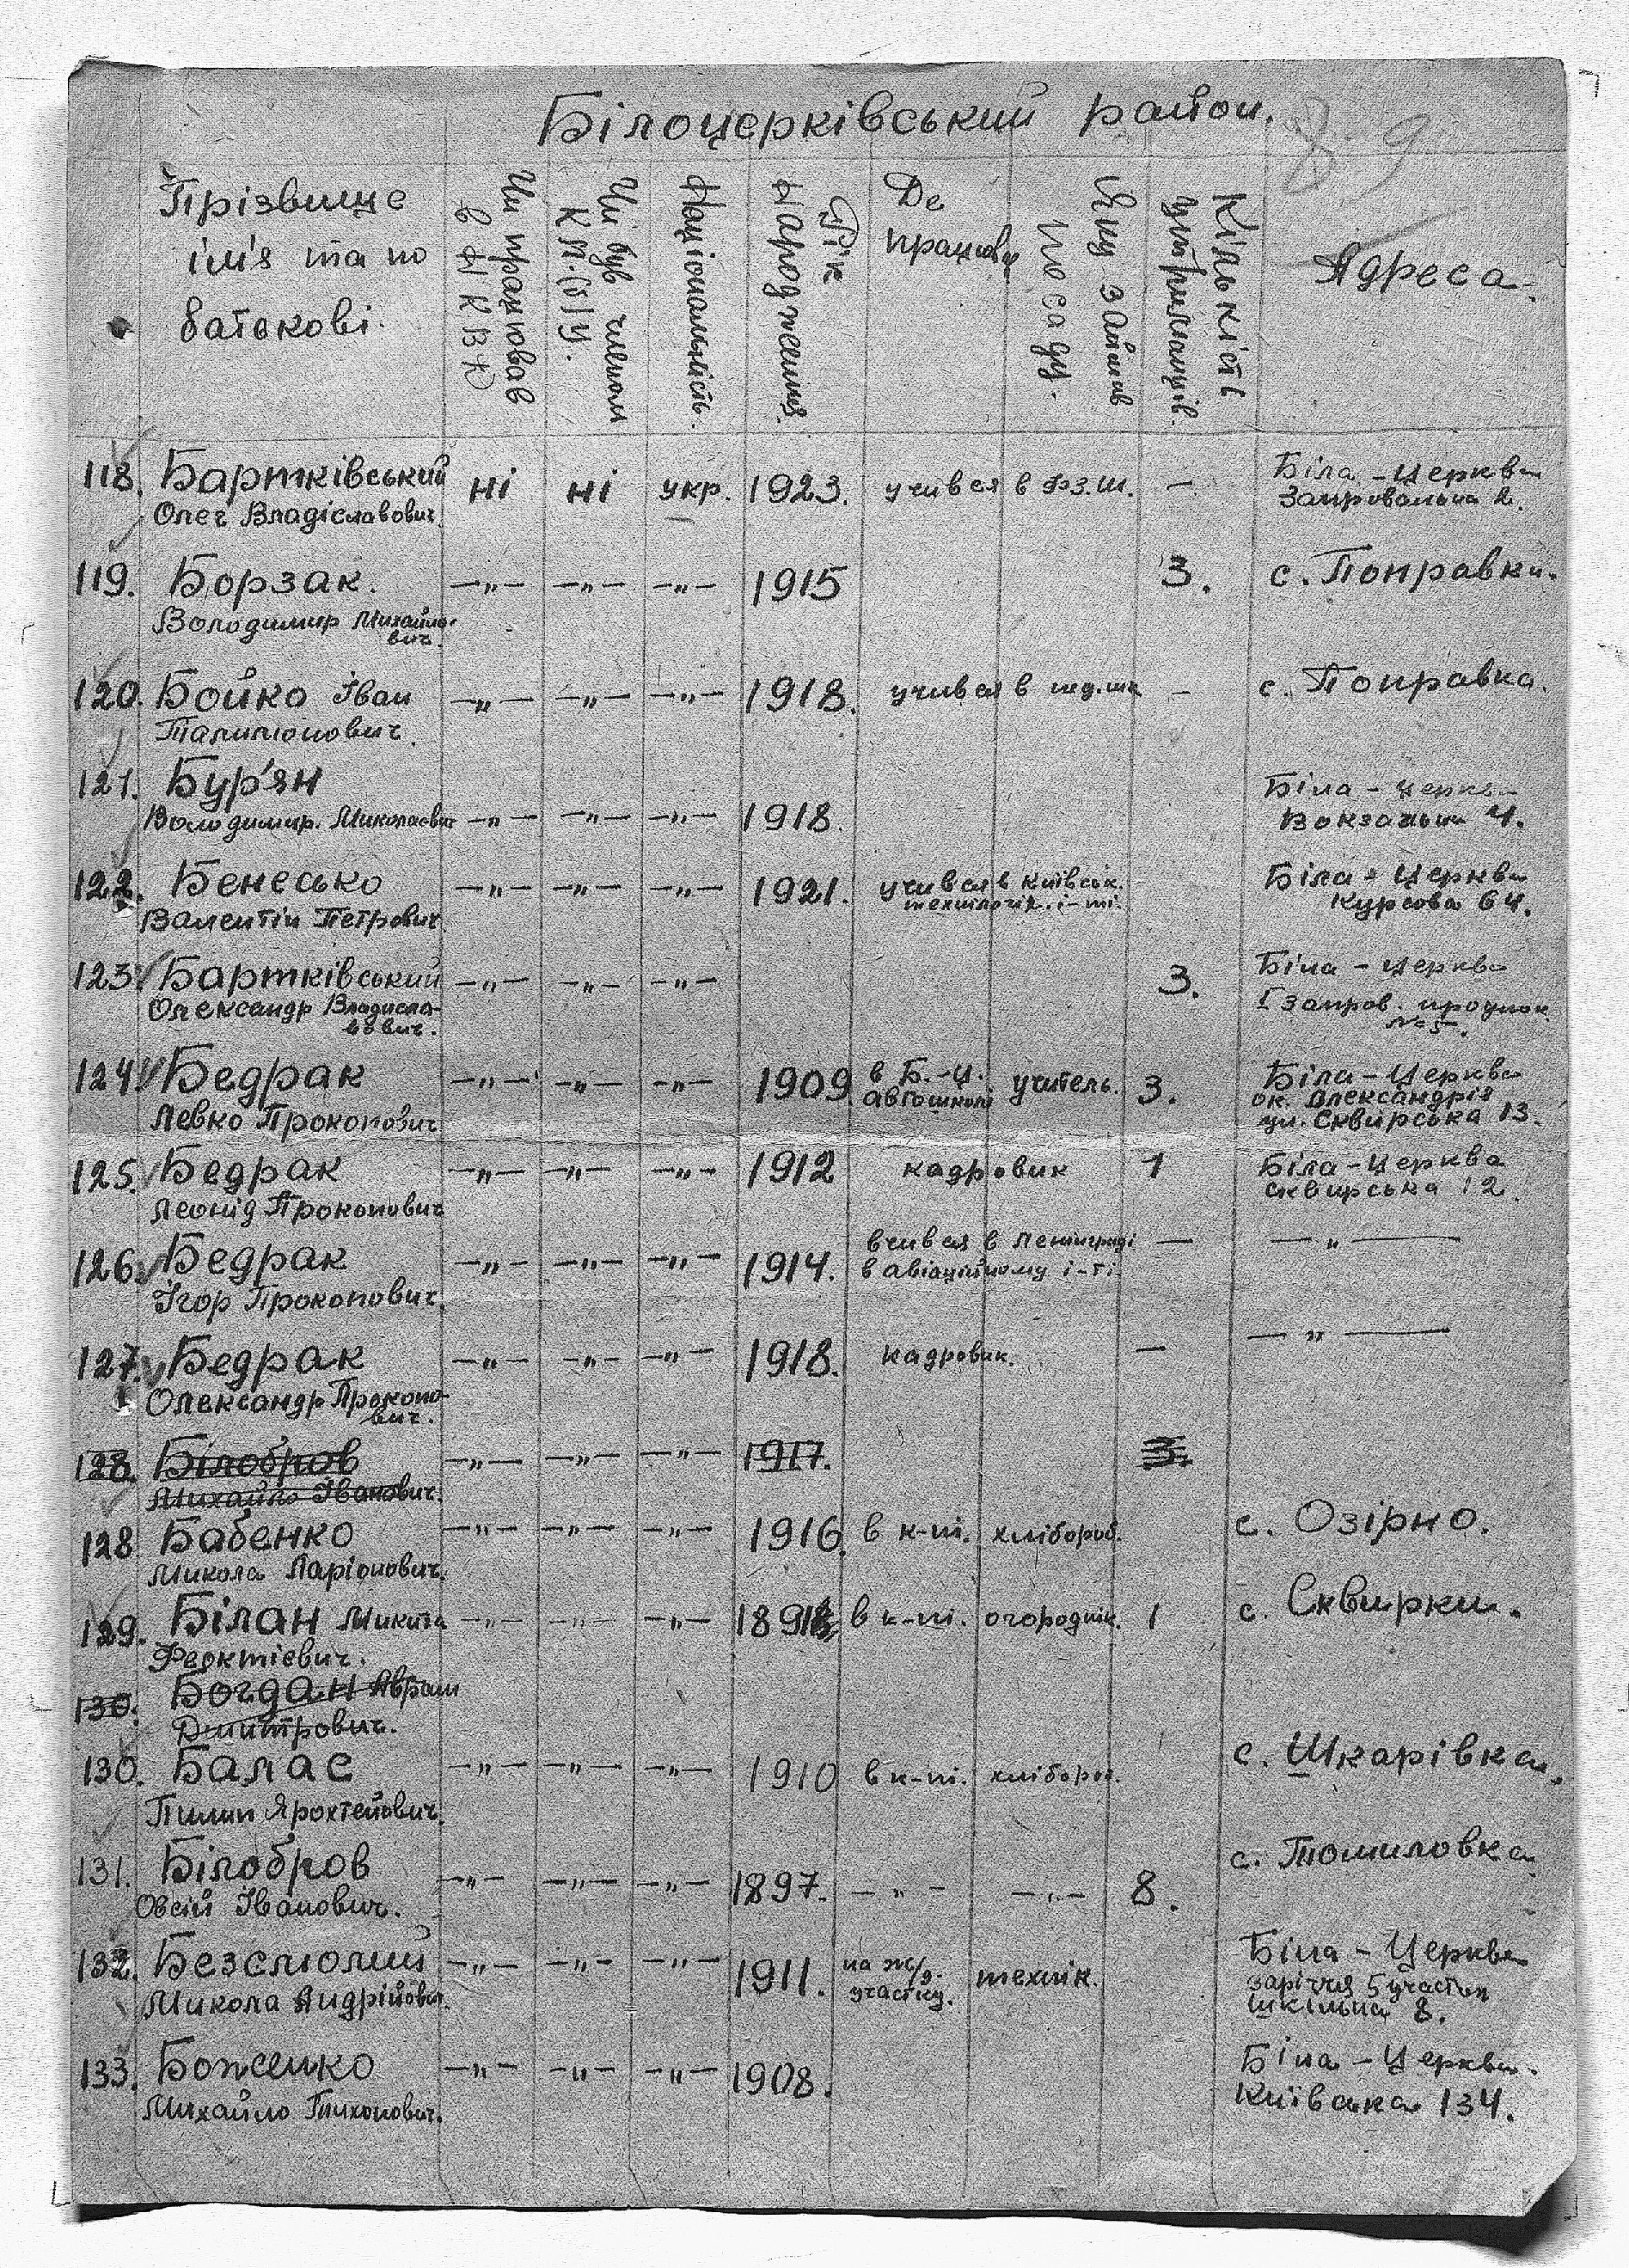 Білоцерківський район.
89
Прізвище
ім'я та по
батькові.
Чи працював
в НКВД
Чи був членом
К.П.(б)У.
Національність.
Рік
народження
Де
працював
Яку займав
посаду.
Кількість
утриманців.
Адреса.
118. Бартківський ні ні укр. 1923. учився в Ф.З.Ш. — Біла-Церква
Олег Владіславович. 2.
119. Борзак. —„— —„— —„— 1915 3. с. Поправки.
Володимир Михайло-
вич.
120. Бойко Іван —„— —„— —„— 1918. учився в — с. Поправка.
121. Бур'ян Біла-Церква
Володимир. Миколаєвич —„— —„— —„— 1918. Вокзальна 4.
122. Бенесько —„— —„— —„— 1921. учився в київськ. Біла-Церква
Валентін Петрович технологіч. і-ті. Курсова 64.
123. Бартківський —„— —„— —„— 3. Біла-Церква
Олександр Владисла- І запров.
вович. №5.
124. Бедрак —„— —„— —„— 1909. в Б.-Ц. учитель. 3. Біла-Церква
Левко Прокопович автошколі ок. Олександрія
ул. Сквирська 13.
125. Бедрак —„— —„— —„— 1912 кадровик 1 Біла-Церква
Леонід Прокопович Сквирська 12.
126. Бедрак —„— —„— —„— 1914. вчився в Ленінграді — —„—
Ігор Прокопович. в авіаційному і-ті.
127. Бедрак —„— —„— —„— 1918. кадровик. — —„—
Олександр Прокопо-
вич.
128. Білобров —„— —„— —„— 1917. 3.
Михайло Іванович.
128 Бабенко —„— —„— —„— 1916. в к-пі. хлібороб. с. Озірно.
Микола Ларіонович.
129. Білан Микита —„— —„— —„— в к-пі. огороднік. 1 с. Сквирки.
Феоктієвич.
130. Богдан Аврам
Дмитрович.
130. Балас —„— —„— —„— 1910 в к-пі. хлібороб. с. Шкарівка.
Пилип
131. Білобров —„— —„— —„— 1897. —„— —„— 8. с. Томиловка
Овсій Іванович.
132. —„— —„— —„— 1911. на ж/д. технік. Біла-Церква
Микола Андрійович. участку. заріччя 5 участок
Шкільна 8.
133. Боженко —„— —„— —„— 1908. Біла-Церква.
Михайло Тихонович. Київська 134.